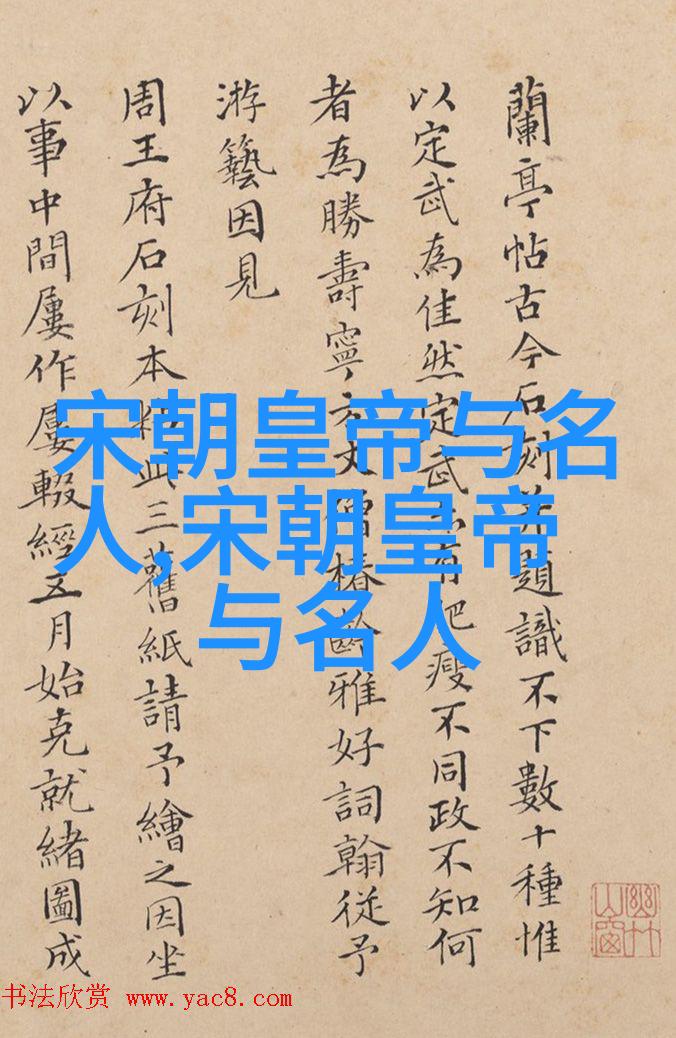 蘭亭帖古今石刻并題識不下數十種惟
以定武為佳然定武亦有肥瘦不同政不知何
者為勝壽寧方丈僧椿齡雅好詞翰從予
游藝因見
周王府石刻本
三舊紙請予繪之因坐
以事中間屢作屢輟經五月始克就緒圖成
宋朝皇帝与名
人,宋朝皇帝
与名人
书法欣赏 www.yac8.com